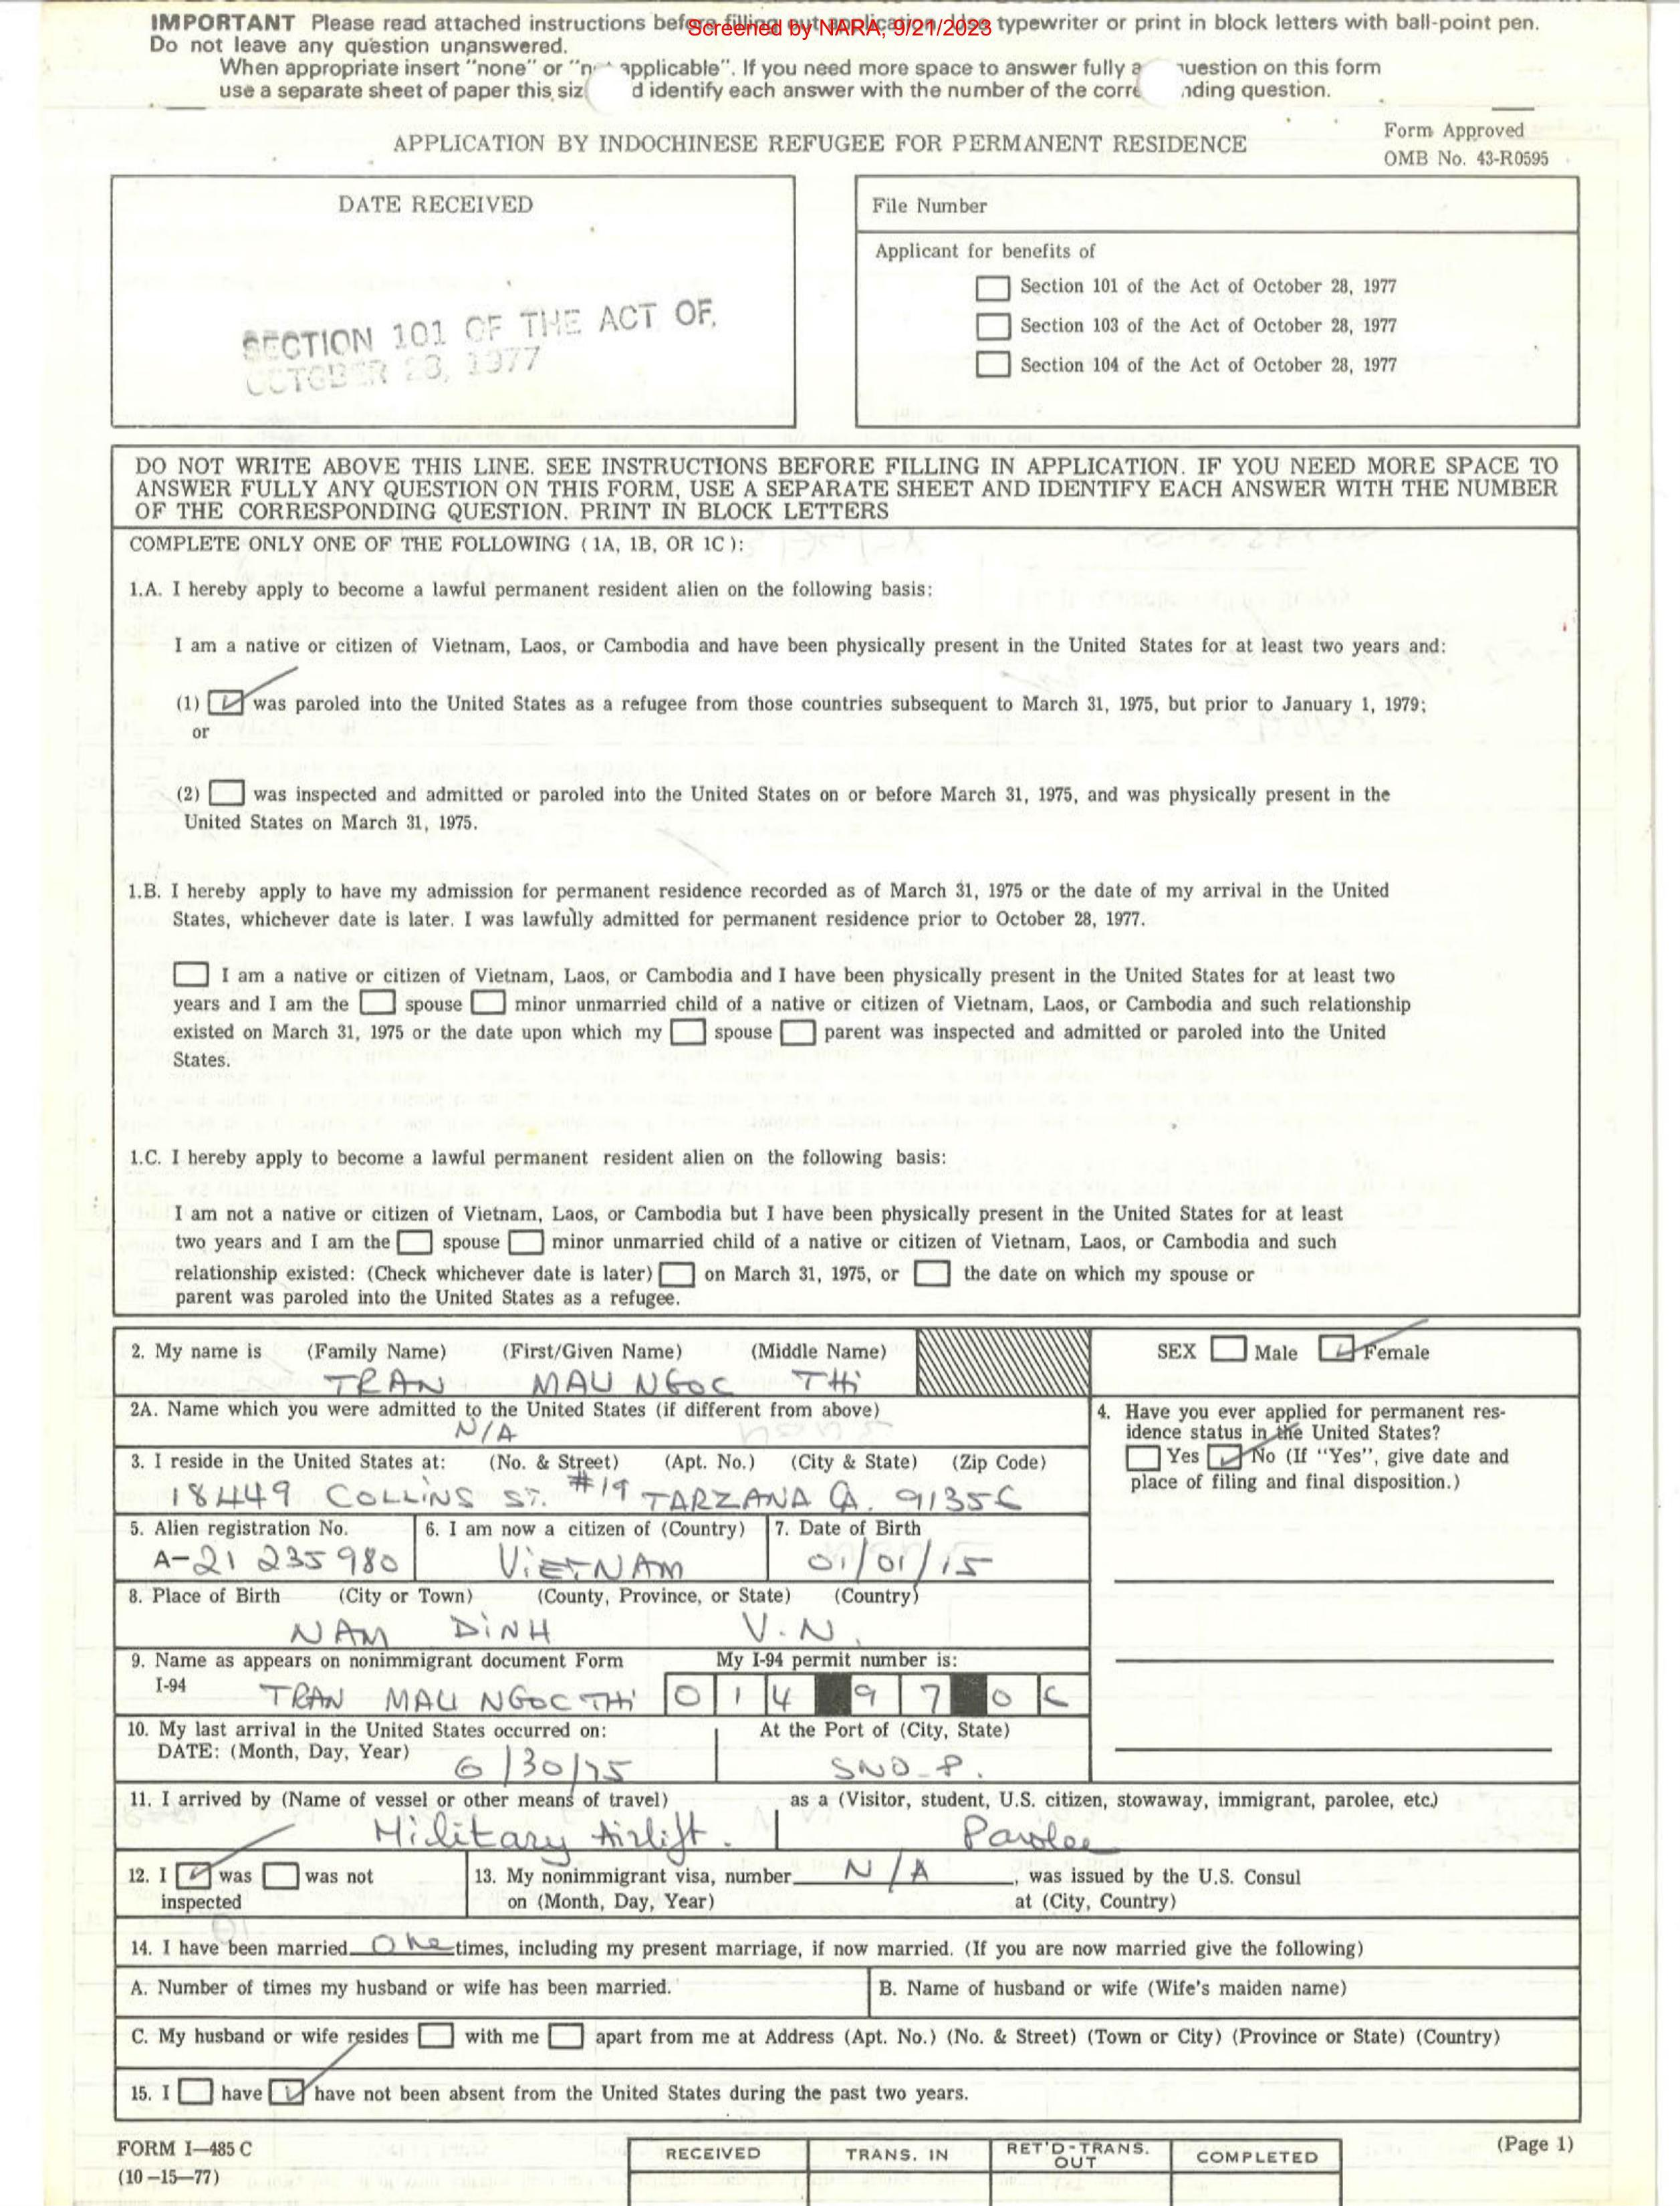 IMPORTANT Please read attached instructions before filling out application. Use typewriter or print in block letters with ball-point pen.
Screened by NARA, 9/21/2023
Do not leave any question unanswered.
When appropriate insert "none" or "n applicable". If you need more space to answer fully a uestion on this form
use a separate sheet of paper this siz d identify each answer with the number of the corre nding question.
APPLICATION BY INDOCHINESE REFUGEE FOR PERMANENT RESIDENCE
Form Approved
OMB No. 43-R0595
DATE RECEIVED
SECTION 101 OF THE ACT OF
OCTOBER 28, 1977
File Number
Applicant for benefits of
Section 101 of the Act of October 28, 1977
Section 103 of the Act of October 28, 1977
Section 104 of the Act of October 28, 1977
DO NOT WRITE ABOVE THIS LINE. SEE INSTRUCTIONS BEFORE FILLING IN APPLICATION. IF YOU NEED MORE SPACE TO
ANSWER FULLY ANY QUESTION ON THIS FORM, USE A SEPARATE SHEET AND IDENTIFY EACH ANSWER WITH THE NUMBER
OF THE CORRESPONDING QUESTION. PRINT IN BLOCK LETTERS
COMPLETE ONLY ONE OF THE FOLLOWING (1A, 1B, OR 1C):
1.A. I hereby apply to become a lawful permanent resident alien on the following basis:
I am a native or citizen of Vietnam, Laos, or Cambodia and have been physically present in the United States for at least two years and:
(1) was paroled into the United States as a refugee from those countries subsequent to March 31, 1975, but prior to January 1, 1979;
or
(2) was inspected and admitted or paroled into the United States on or before March 31, 1975, and was physically present in the
United States on March 31, 1975.
1.B. I hereby apply to have my admission for permanent residence recorded as of March 31, 1975 or the date of my arrival in the United
States, whichever date is later. I was lawfully admitted for permanent residence prior to October 28, 1977.
I am a native or citizen of Vietnam, Laos, or Cambodia and I have been physically present in the United States for at least two
years and I am the spouse minor unmarried child of a native or citizen of Vietnam, Laos, or Cambodia and such relationship
existed on March 31, 1975 or the date upon which my spouse parent was inspected and admitted or paroled into the United
States.
1.C. I hereby apply to become a lawful permanent resident alien on the following basis:
I am not a native or citizen of Vietnam, Laos, or Cambodia but I have been physically present in the United States for at least
two years and I am the spouse minor unmarried child of a native or citizen of Vietnam, Laos, or Cambodia and such
relationship existed: (Check whichever date is later) on March 31, 1975, or the date on which my spouse or
parent was paroled into the United States as a refugee.
2. My name is (Family Name) (First/Given Name) (Middle Name)
TRAN MAU NGOC THi
SEX Male Female
2A. Name which you were admitted to the United States (if different from above)
N/A
3. I reside in the United States at: (No. & Street) (Apt. No.) (City & State) (Zip Code)
18449 COLLiNS ST. #19 TARZANA CA. 91356
4. Have you ever applied for permanent res-
idence status in the United States?
Yes No (If "Yes", give date and
place of filing and final disposition.)
5. Alien registration No.
A-21 235 980
6. I am now a citizen of (Country)
ViETNAM
7. Date of Birth
01/01/15
8. Place of Birth (City or Town) (County, Province, or State) (Country)
NAM DiNH V.N.
9. Name as appears on nonimmigrant document Form
I-94
TRAN MAU NGOC THi
My I-94 permit number is:
0 1 4 9 7 0 6
10. My last arrival in the United States occurred on:
DATE: (Month, Day, Year)
6/30/75
At the Port of (City, State)
SND-P.
11. I arrived by (Name of vessel or other means of travel) as a (Visitor, student, U.S. citizen, stowaway, immigrant, parolee, etc.)
Military Airlift. Parolee
12. I was was not
inspected
13. My nonimmigrant visa, number N/A, was issued by the U.S. Consul
on (Month, Day, Year) at (City, Country)
14. I have been married One times, including my present marriage, if now married. (If you are now married give the following)
A. Number of times my husband or wife has been married.
B. Name of husband or wife (Wife's maiden name)
C. My husband or wife resides with me apart from me at Address (Apt. No.) (No. & Street) (Town or City) (Province or State) (Country)
15. I have have not been absent from the United States during the past two years.
FORM I-485 C
(10-15-77)
RECEIVED
TRANS. IN
RET'D-TRANS.
OUT
COMPLETED
(Page 1)